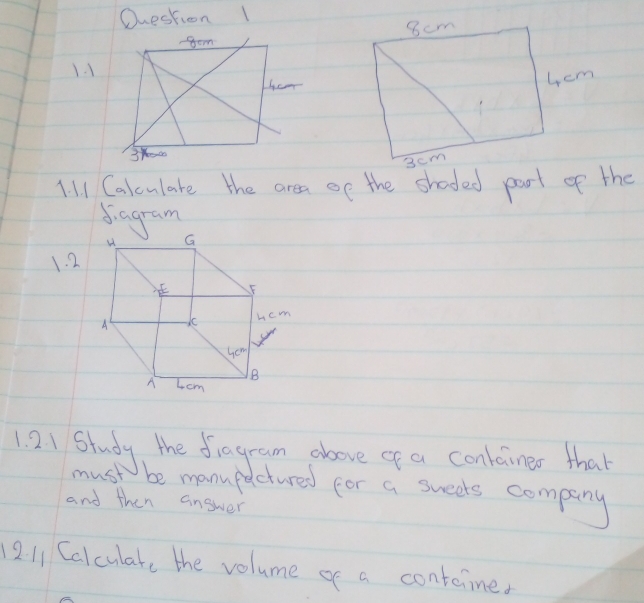 Question 1
8cm
8cm
1.1
4cm
4cm
3cm
1.1.1 Calculate the area of the shaded part of the
diagram
H G
1.2
E F
4cm
A C
4cm
A 4cm B
1.2.1 Study the diagram above of a container that
must be manufactured for a sweets company
and then answer
1.2.1.1 Calculate the volume of a container